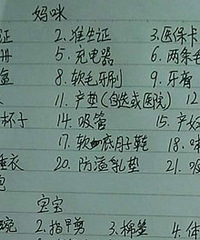 妈咪
证 2. 准生证 3. 医保卡
册 5. 充电器 6. 两条毛
盒 8. 软毛牙刷 9. 牙膏
11. 产垫(自送或医院) 12
杯子 14. 吸管 15. 产妇
17. 软如底月子鞋 18.
睡衣 20. 防溢乳垫 21. 吸
宝宝
碗 2. 指甲剪 3. 棉签 4. 体